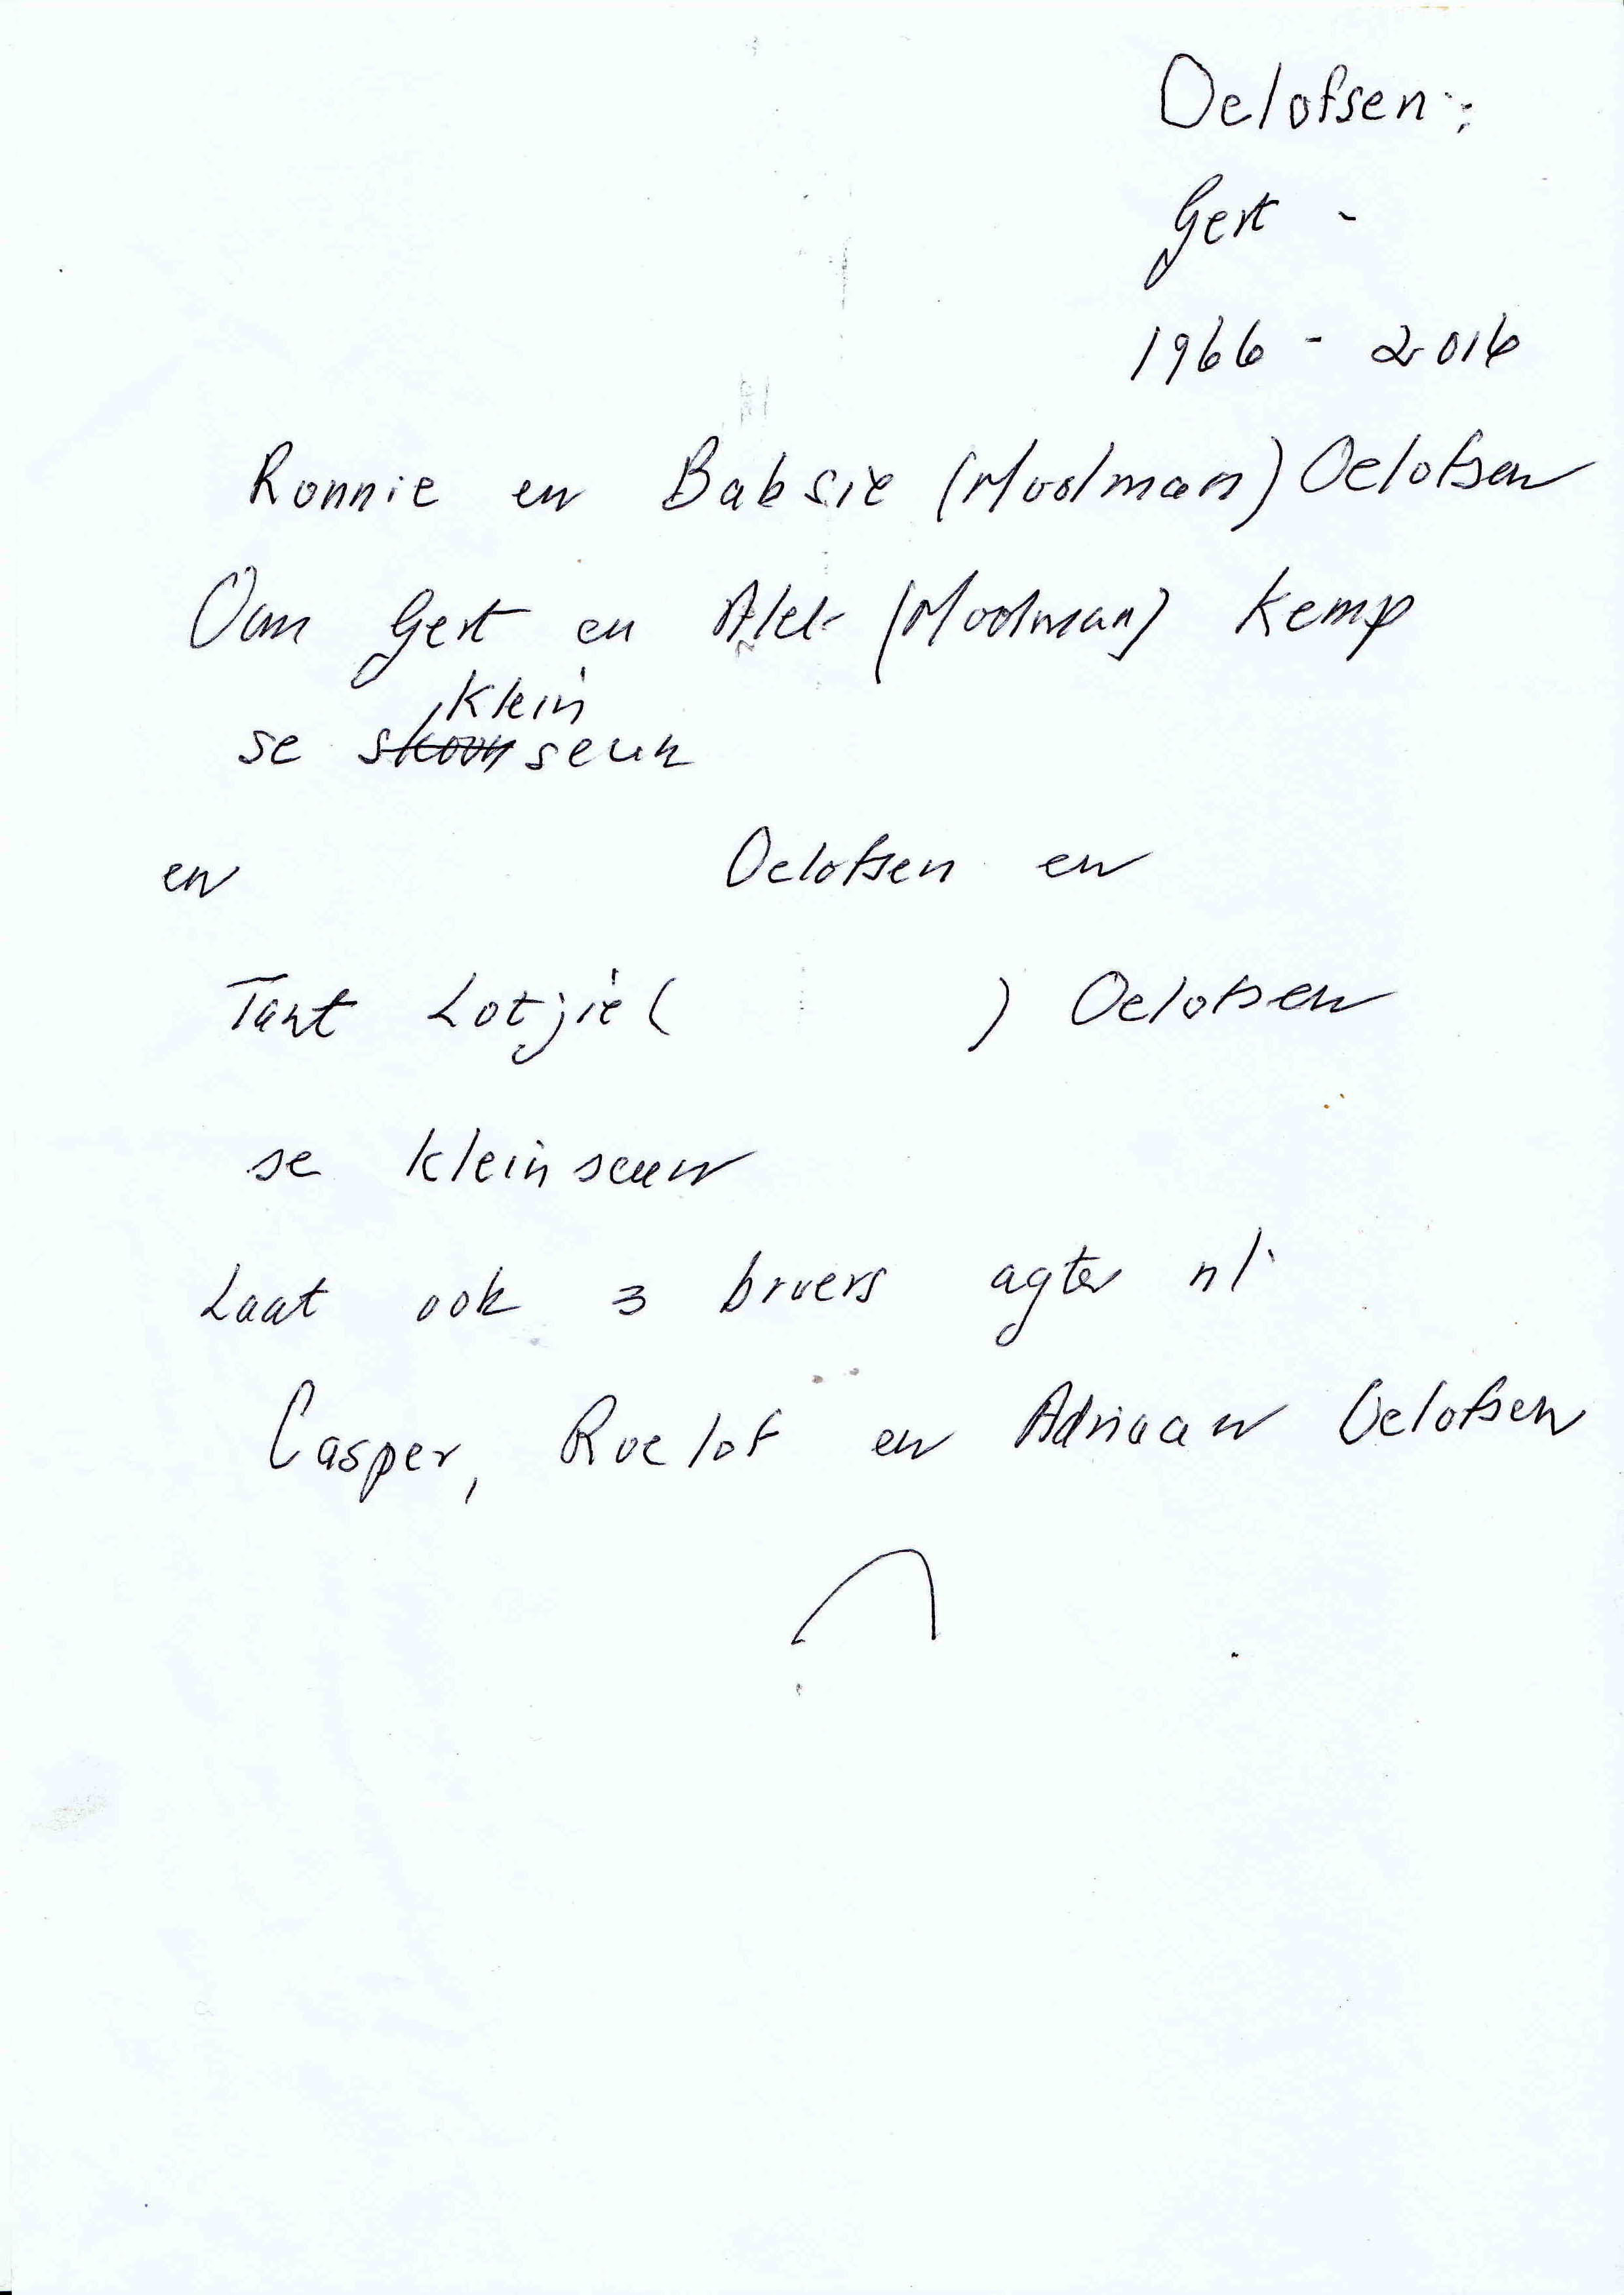 Oelofsen:
Gert -
1966 - 2016
Ronnie en Babsie (Moolman) Oelofsen
Oom Gert en (Moolman) Kemp
klein
se skoonseun
en Oelofsen en
Tant Lotjie ( ) Oelofsen
se kleinseun
Laat ook 3 broers agter nl.
Casper, Roelof en Adriaan Oelofsen